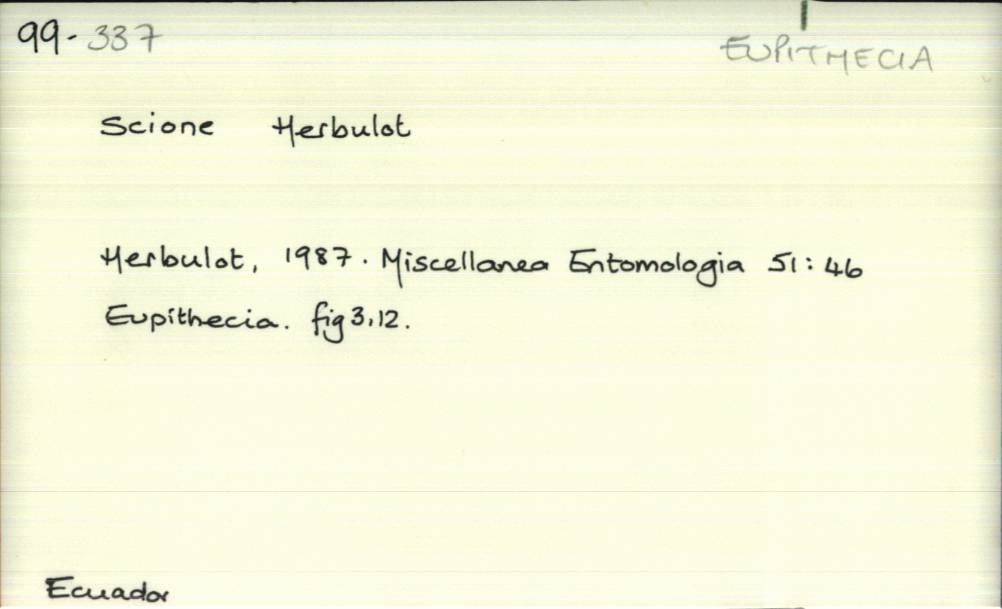 99-337
EUPITHECIA
Scione Herbulot
Herbulot, 1987. Miscellanea Entomologia 51:46
Eupithecia. fig 3,12.
Ecuador